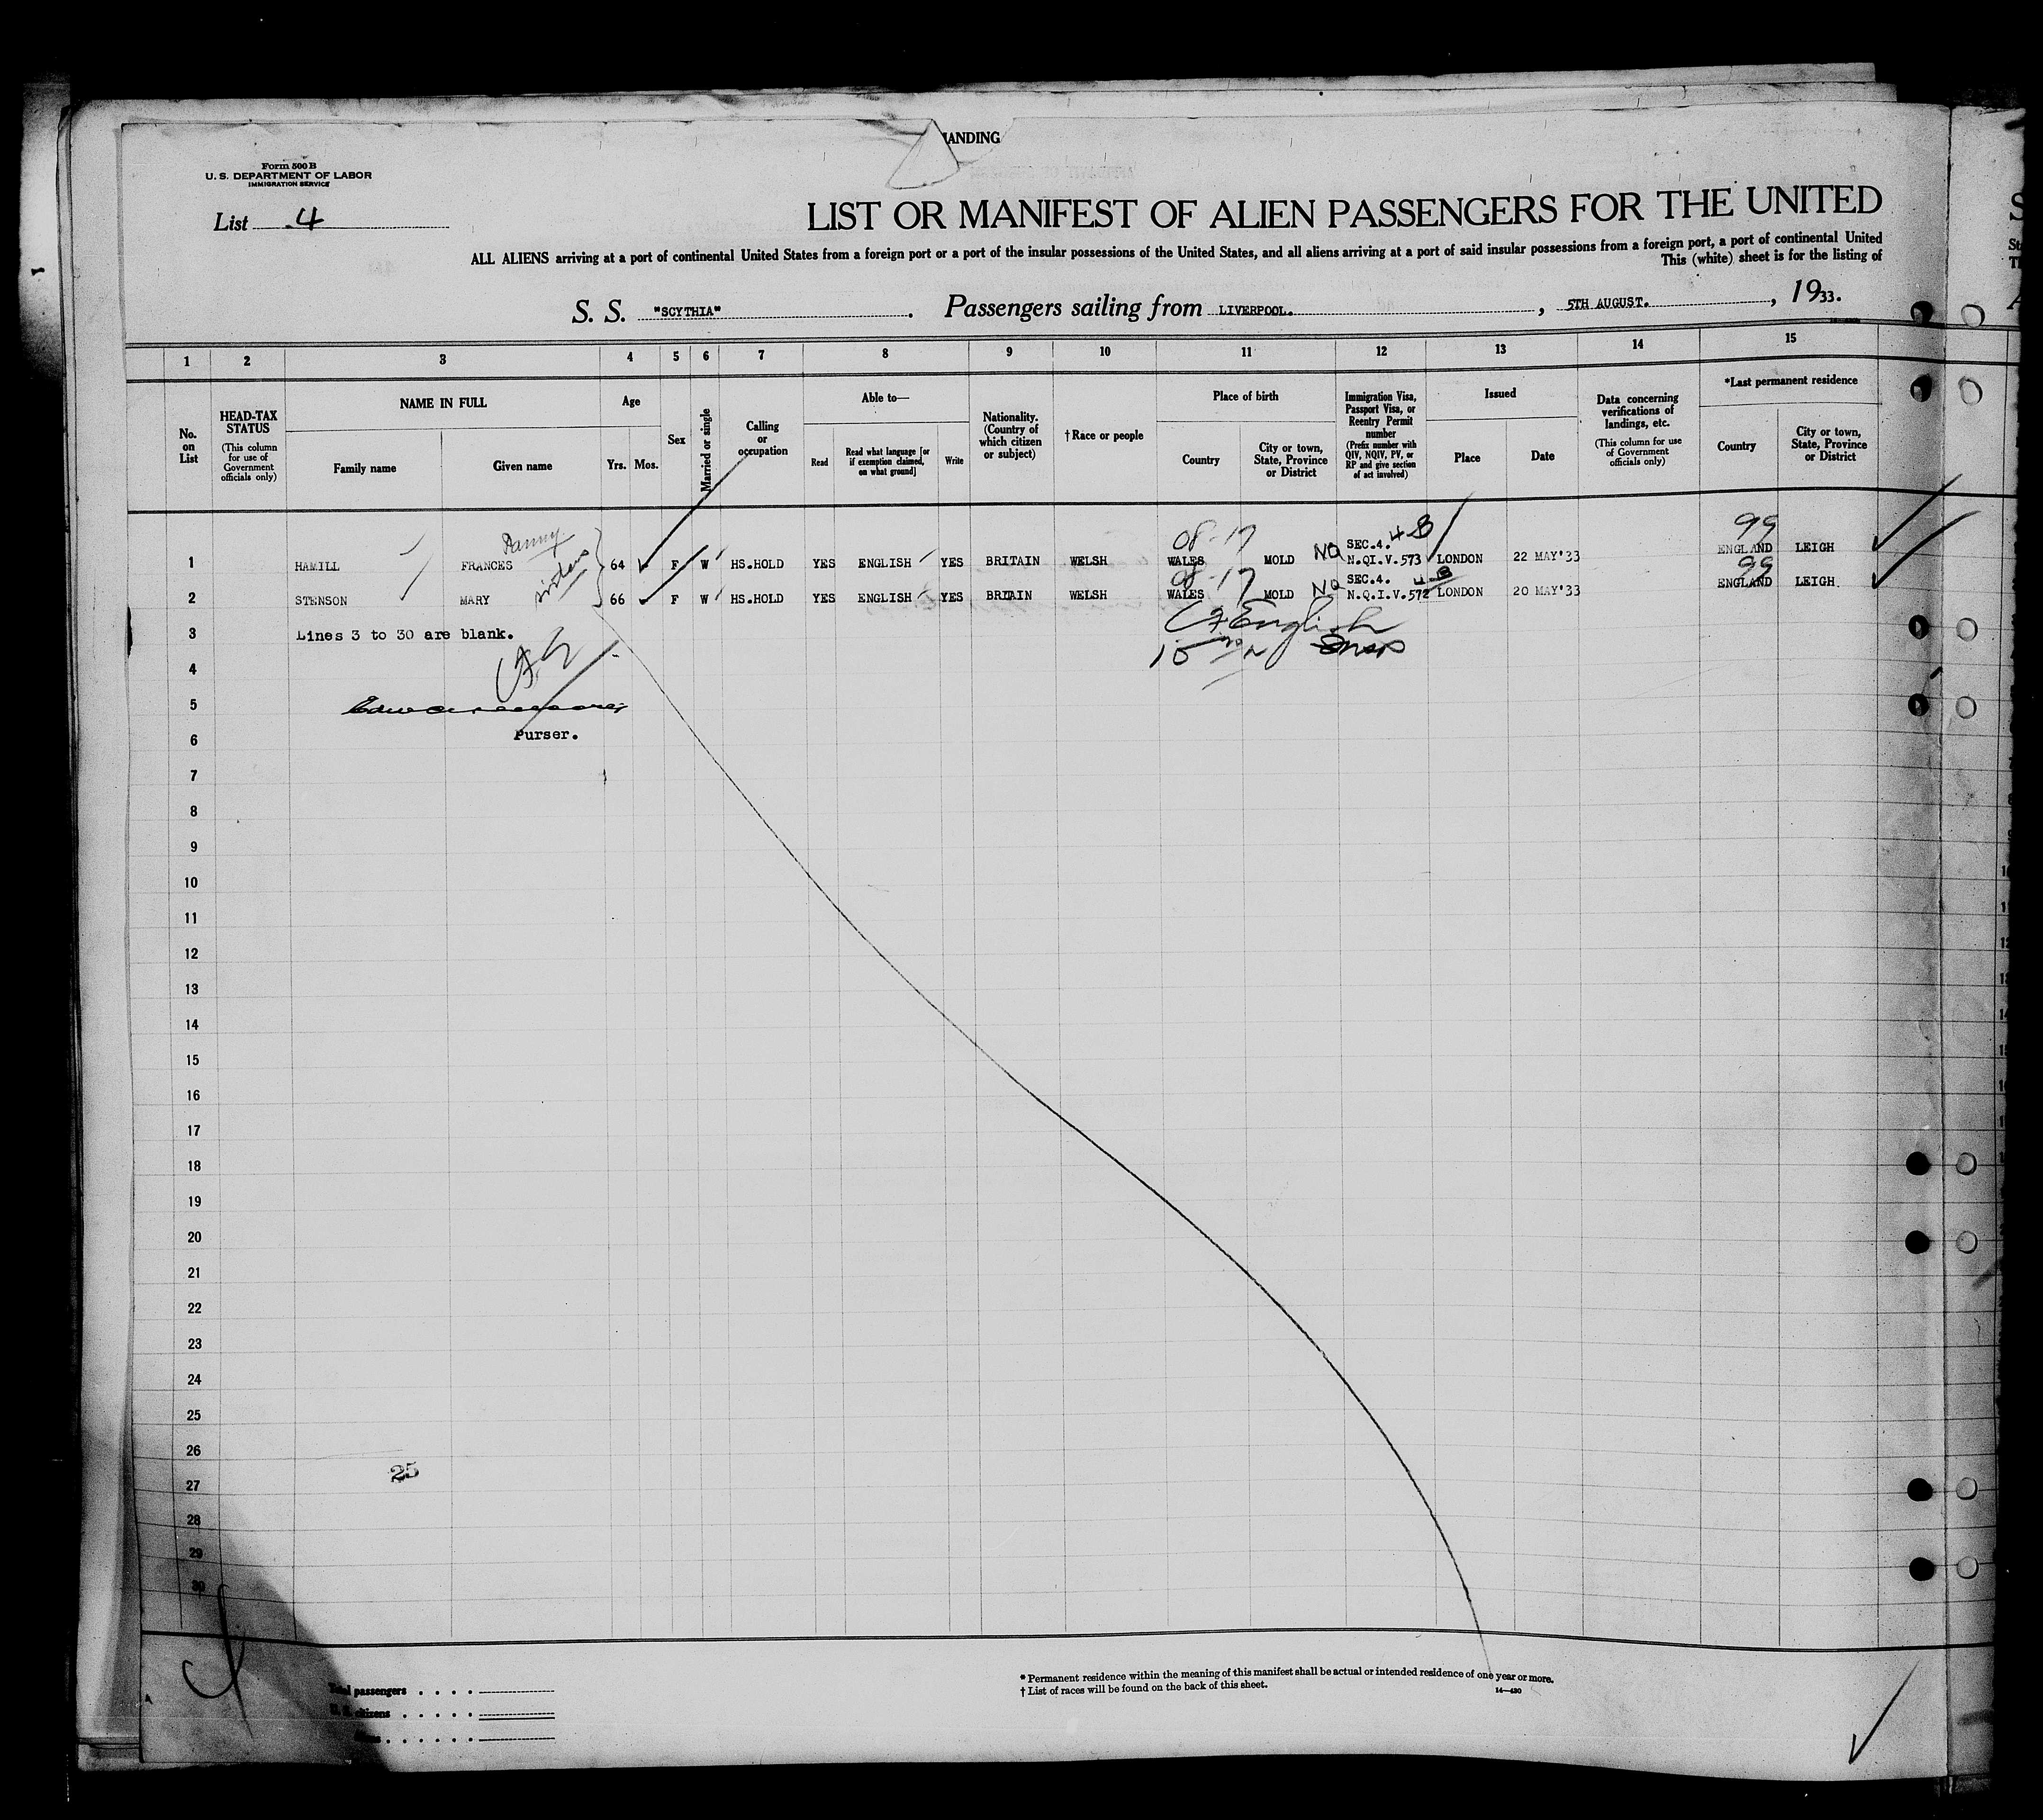 LANDING
Form 500 B
U. S. DEPARTMENT OF LABOR
IMMIGRATION SERVICE
List 4
LIST OR MANIFEST OF ALIEN PASSENGERS FOR THE UNITED
ALL ALIENS arriving at a port of continental United States from a foreign port or a port of the insular possessions of the United States, and all aliens arriving at a port of said insular possessions from a foreign port, a port of continental United
This (white) sheet is for the listing of
S. S. "SCYTHIA". Passengers sailing from LIVERPOOL. , 5TH AUGUST. , 1933.
1 2 3 4 5 6 7 8 9 10 11 12 13 14 15
No. on List
HEAD-TAX STATUS
(This column for use of Government officials only)
NAME IN FULL
Family name
Given name
Age
Yrs. Mos.
Sex
Married or single
Calling or occupation
Able to—
Read
Read what language [or if exemption claimed, on what ground]
Write
Nationality. (Country of which citizen or subject)
† Race or people
Place of birth
Country
City or town, State, Province or District
Immigration Visa, Passport Visa, or Reentry Permit number
(Prefix number with QIV, NQIV, PV, or RP and give section of act involved)
Issued
Place
Date
Data concerning verifications of landings, etc.
(This column for use of Government officials only)
*Last permanent residence
Country
City or town, State, Province or District
08-17 SEC.4. 4 B 99
1 HAMILL FRANCES 64 F W HS.HOLD YES ENGLISH YES BRITAIN WELSH WALES MOLD NQ N.QI.V.573 LONDON 22 MAY'33 ENGLAND LEIGH
sisters
08-17 SEC.4. 4 B 99
2 STENSON MARY 66 F W HS.HOLD YES ENGLISH YES BRITAIN WELSH WALES MOLD NQ N.Q.I.V.572 LONDON 20 MAY'33 ENGLAND LEIGH
English
3 Lines 3 to 30 are blank.
4
5
6 Purser.
7
8
9
10
11
12
13
14
15
16
17
18
19
20
21
22
23
24
25
26
25
27
28
29
30
* Permanent residence within the meaning of this manifest shall be actual or intended residence of one year or more.
† List of races will be found on the back of this sheet.
14—430
Total passengers
U. S. citizens
Aliens